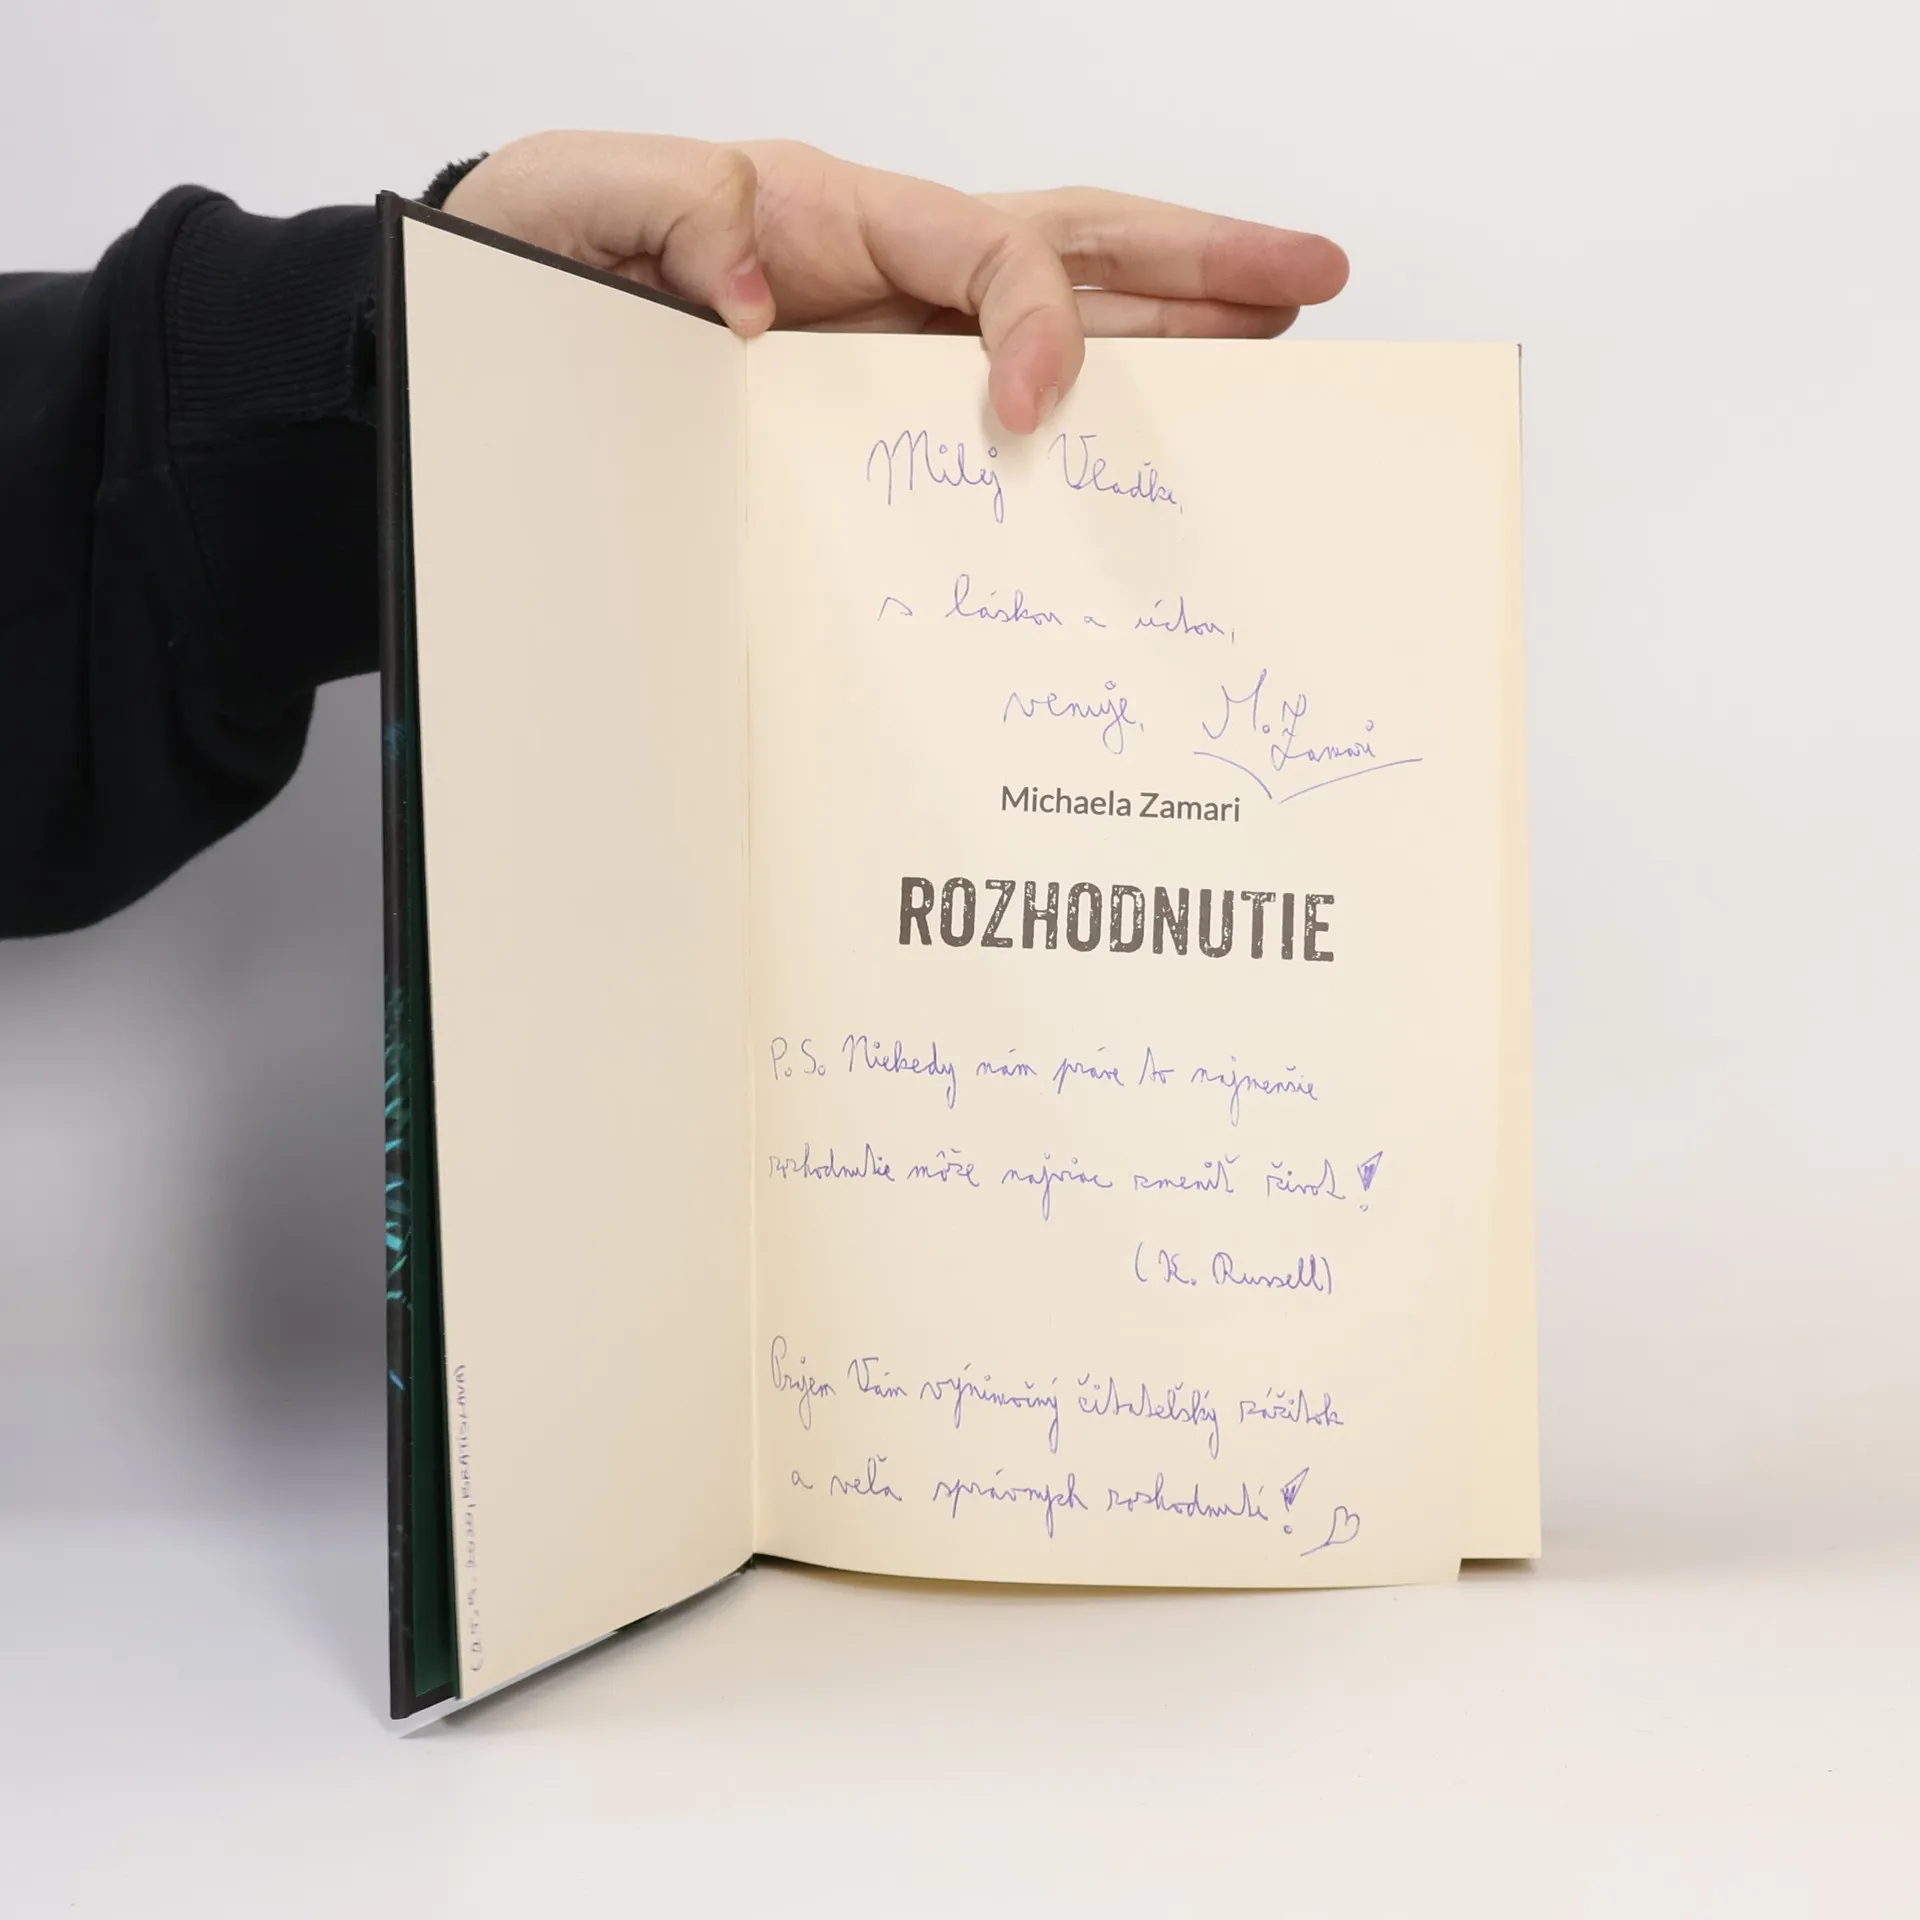 Milej Vladke,
s láskou a úctou,
venuje, M. Z.
Zamari
Michaela Zamari
ROZHODNUTIE
P.S. Niekedy nám práve to najmenšie
rozhodnutie môže najviac zmeniť život!
(K. Russell)
Prajem Vám výnimočný čitateľský zážitok
a veľa správnych rozhodnutí!
BRATISLAVA)